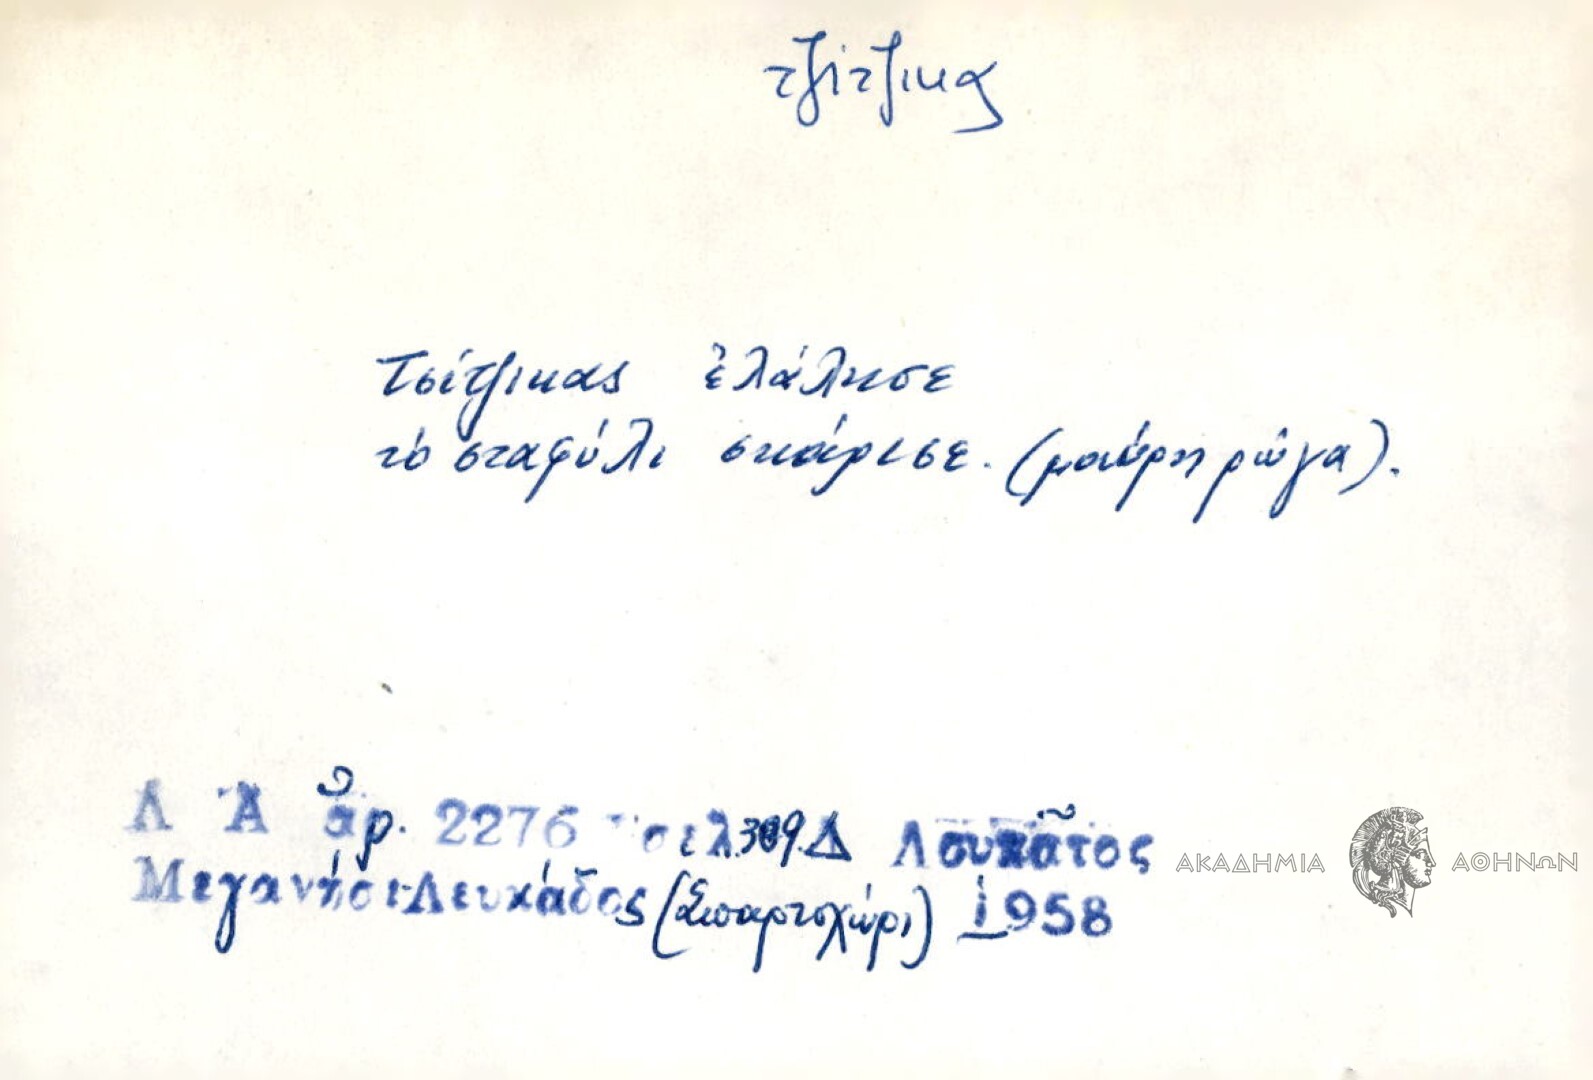 τζίτζικας
Τσίτζικας ἐλάλησε
τό σταφύλι σκάρισε. (μαύρη ρώγα).
Λ Α ἀρ. 2276 σελ. 309. Δ Λουκᾶτος
Μεγανήσι Λευκάδος (Σπαρτοχώρι) 1958
ΑΚΑΔΗΜΙΑ ΑΘΗΝΩΝ